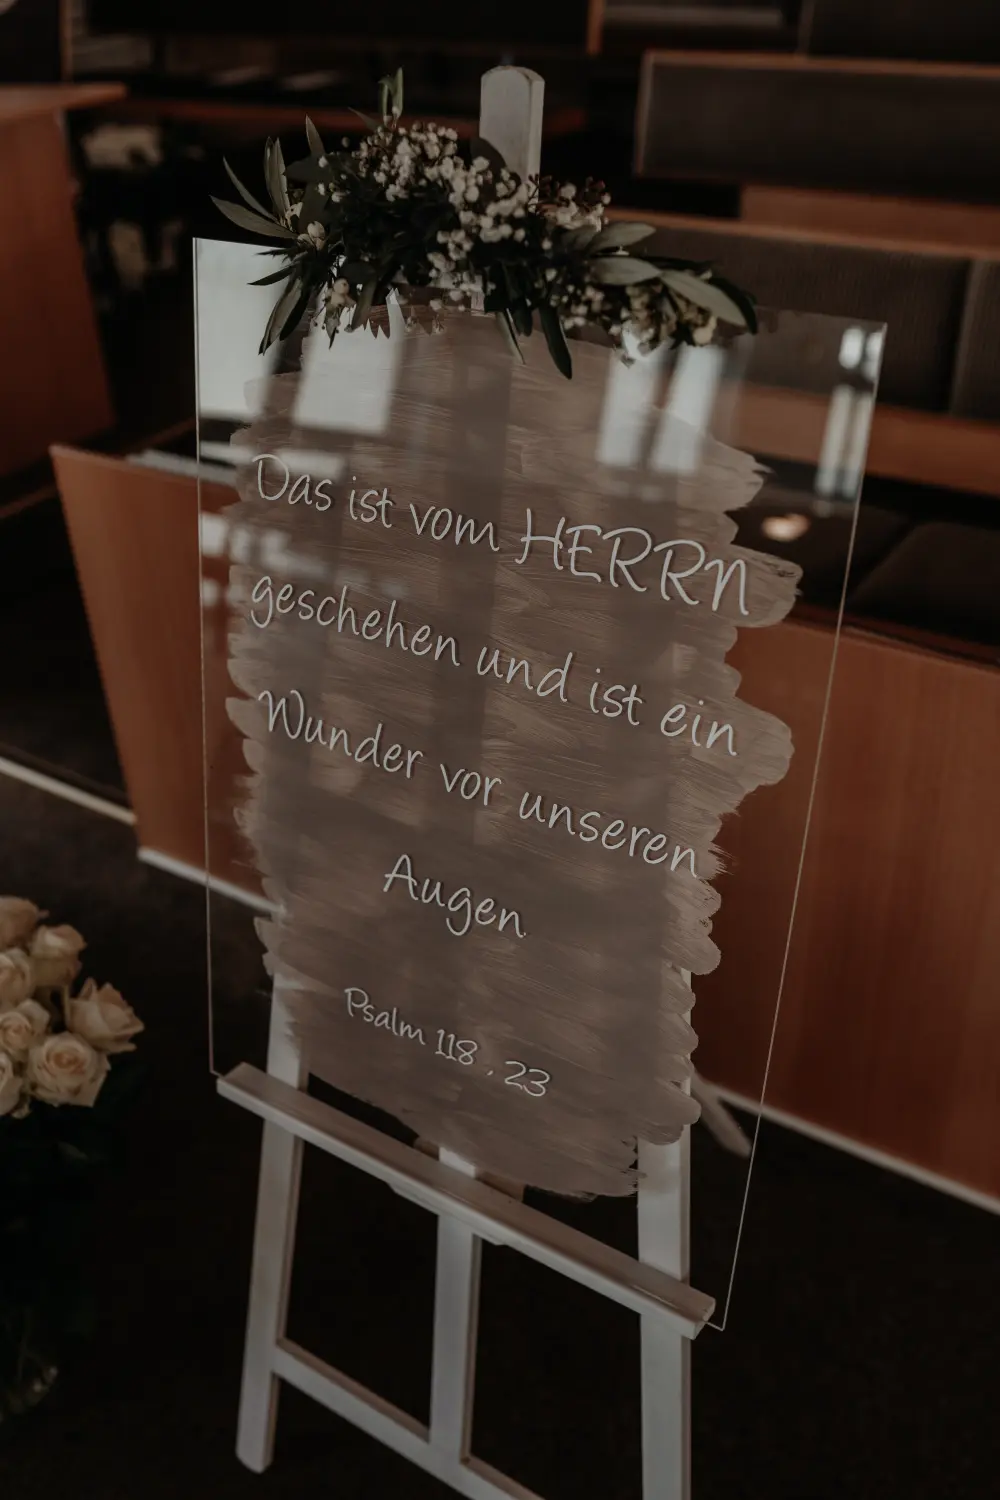 Das ist vom HERRN
geschehen und ist ein
Wunder vor unseren
Augen.
Psalm 118 , 23